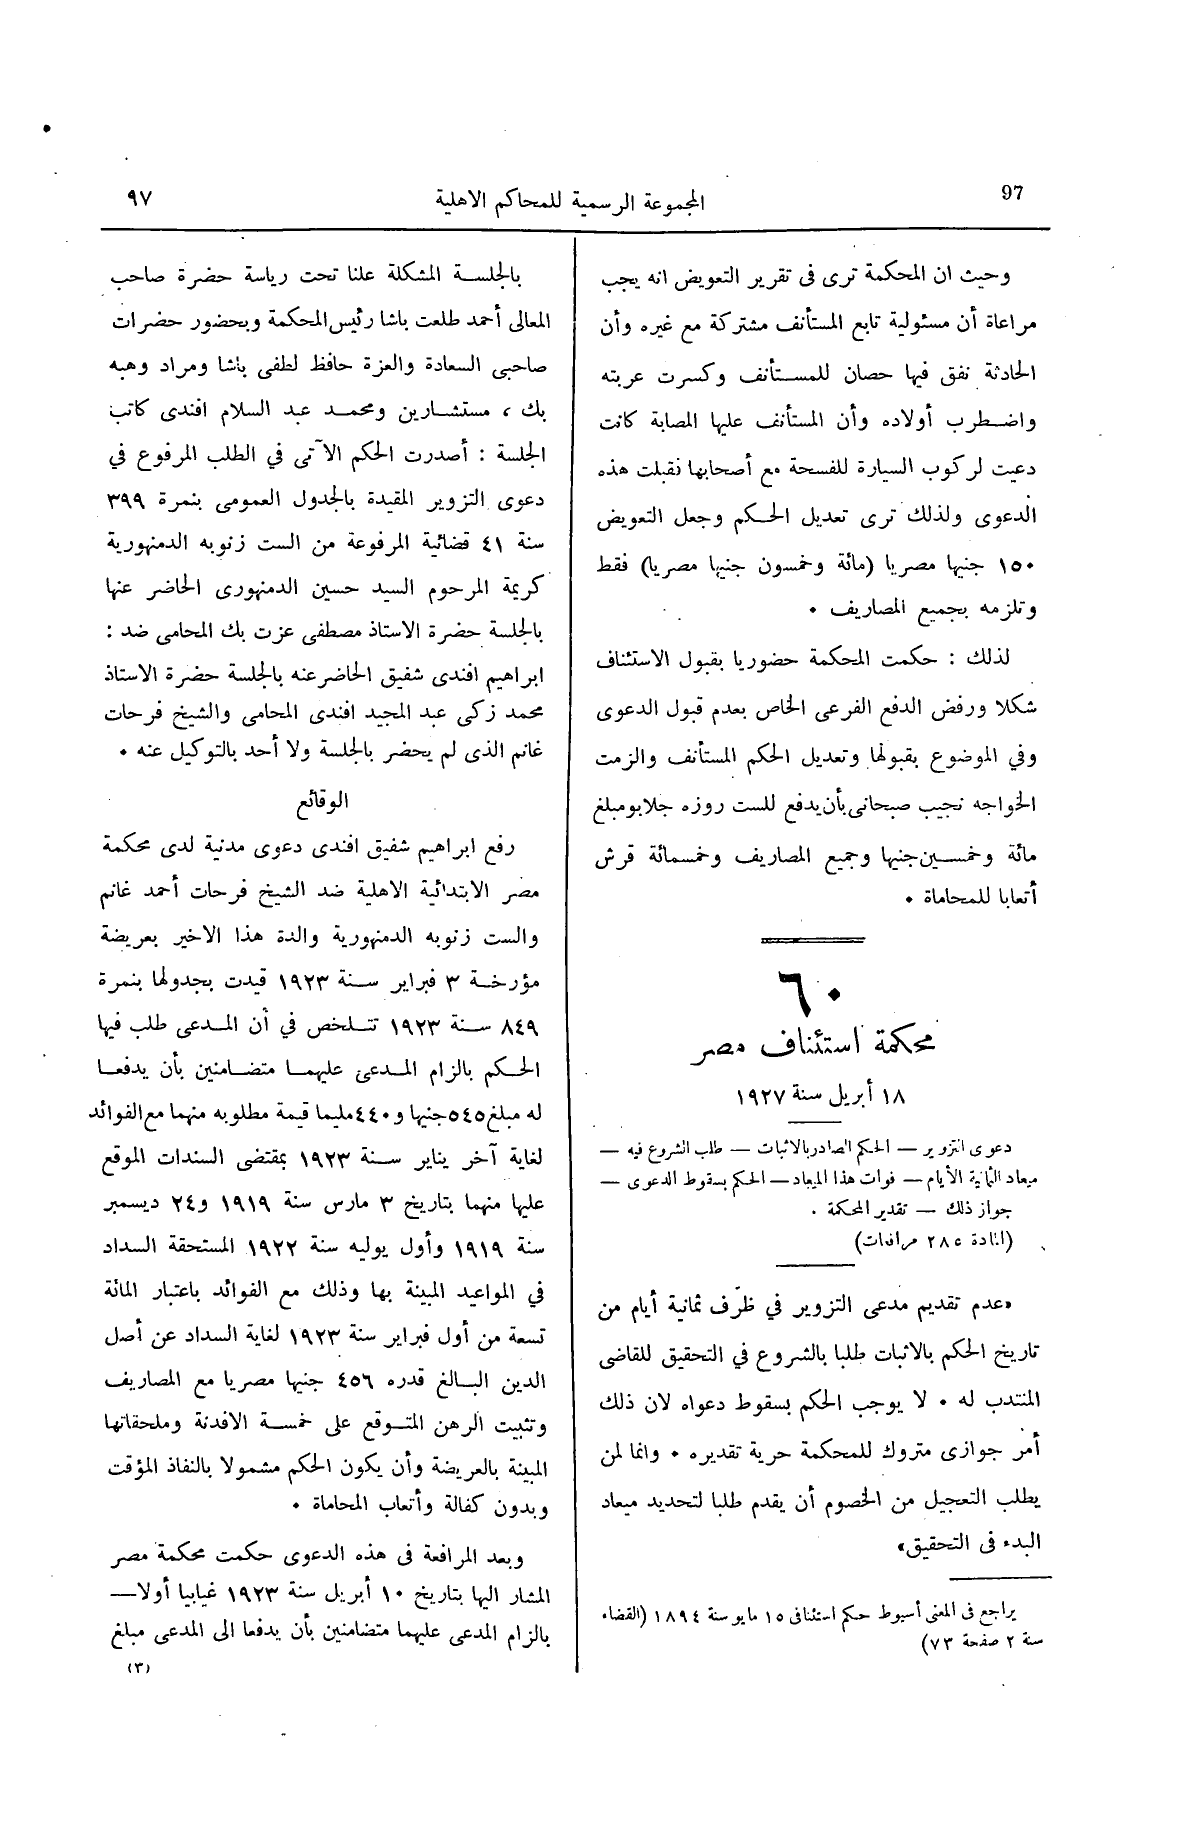 97
المجموعة الرسمية للمحاكم الاهلية
٩٧
وحيث ان المحكمة ترى فى تقرير التعويض انه يجب
مراعاة أن مسئولية تابع المستأنف مشتركة مع غيره وأن
الحادثة نفق فيها حصان للمستأنف وكسرت عربته
واضطرب أولاده وأن المستأنف عليها المصابة كانت
دعيت لركوب السيارة للفسحة مع أصحابها نقبلت هذه
الدعوى ولذلك ترى تعديل الحكم وجعل التعويض
١٥٠ جنيها مصريا (مائة وخمسون جنيها مصريا) فقط
وتلزمه بجميع المصاريف ٠
لذلك : حكمت المحكمة حضوريا بقبول الاستئناف
شكلا ورفض الدفع الفرعى الخاص بعدم قبول الدعوى
وفي الموضوع بقبولها وتعديل الحكم المستأنف والزمت
الخواجه نجيب صبحانى بأن يدفع للست روزه جلابو مبلغ
مائة وخمسين جنيها وجميع المصاريف وخمسمائة قرش
أتعابا للمحاماة ٠
٦٠
محكمة استئناف مصر
١٨ أبريل سنة ١٩٢٧
دعوى التزوير — الحكم الصادر بالاثبات — طلب الشروع فيه —
ميعاد الثمانية الأيام — فوات هذا الميعاد — الحكم بسقوط الدعوى —
جواز ذلك — تقدير المحكمة .
(المادة ٢٨٥ مرافعات)
«عدم تقديم مدعى التزوير في ظرف ثمانية أيام من
تاريخ الحكم بالاثبات طلبا بالشروع في التحقيق للقاضى
المنتدب له ٠ لا يوجب الحكم بسقوط دعواه لان ذلك
أمر جوازى متروك للمحكمة حرية تقديره ٠ وانما لمن
يطلب التعجيل من الخصوم أن يقدم طلبا لتحديد ميعاد
البدء فى التحقيق»
يراجع فى المعنى أسيوط حكم استئنافى ١٥ مايو سنة ١٨٩٤ (القضاء
سنة ٢ صفحة ٧٣)
بالجلسة المشكلة علنا تحت رياسة حضرة صاحب
المعالى أحمد طلعت باشا رئيس المحكمة وبحضور حضرات
صاحبى السعادة والعزة حافظ لطفى باشا ومراد وهبه
بك ، مستشارين ومحمد عبد السلام افندى كاتب
الجلسة : أصدرت الحكم الآتى في الطلب المرفوع في
دعوى التزوير المقيدة بالجدول العمومى بنمرة ٣٩٩
سنة ٤١ قضائية المرفوعة من الست زنوبه الدمنهورية
كريمة المرحوم السيد حسين الدمنهورى الحاضر عنها
بالجلسة حضرة الاستاذ مصطفى عزت بك المحامى ضد :
ابراهيم افندى شفيق الحاضر عنه بالجلسة حضرة الاستاذ
محمد زكى عبد المجيد افندى المحامى والشيخ فرحات
غانم الذى لم يحضر بالجلسة ولا أحد بالتوكيل عنه ٠
الوقائع
رفع ابراهيم شفيق افندى دعوى مدنية لدى محكمة
مصر الابتدائية الاهلية ضد الشيخ فرحات أحمد غانم
والست زنوبه الدمنهورية والدة هذا الاخير بعريضة
مؤرخة ٣ فبراير سنة ١٩٢٣ قيدت بجدولها بنمرة
٨٤٩ سنة ١٩٢٣ تتلخص في أن المدعى طلب فيها
الحكم بالزام المدعى عليهما متضامنين بأن يدفعا
له مبلغ ٥٤٥ جنيها و٤٤٠ مليما قيمة مطلوبه منهما مع الفوائد
لغاية آخر يناير سنة ١٩٢٣ بمقتضى السندات الموقع
عليها منهما بتاريخ ٣ مارس سنة ١٩١٩ و٢٤ ديسمبر
سنة ١٩١٩ وأول يوليه سنة ١٩٢٢ المستحقة السداد
في المواعيد المبينة بها وذلك مع الفوائد باعتبار المائة
تسعة من أول فبراير سنة ١٩٢٣ لغاية السداد عن أصل
الدين البالغ قدره ٤٥٦ جنيها مصريا مع المصاريف
وتثبيت الرهن المتوقع على خمسة الافدنة وملحقاتها
المبينة بالعريضة وأن يكون الحكم مشمولا بالنفاذ المؤقت
وبدون كفالة وأتعاب المحاماة ٠
وبعد المرافعة فى هذه الدعوى حكمت محكمة مصر
المشار اليها بتاريخ ١٠ أبريل سنة ١٩٢٣ غيابيا أولا—
بالزام المدعى عليهما متضامنين بأن يدفعا الى المدعى مبلغ
(٣)